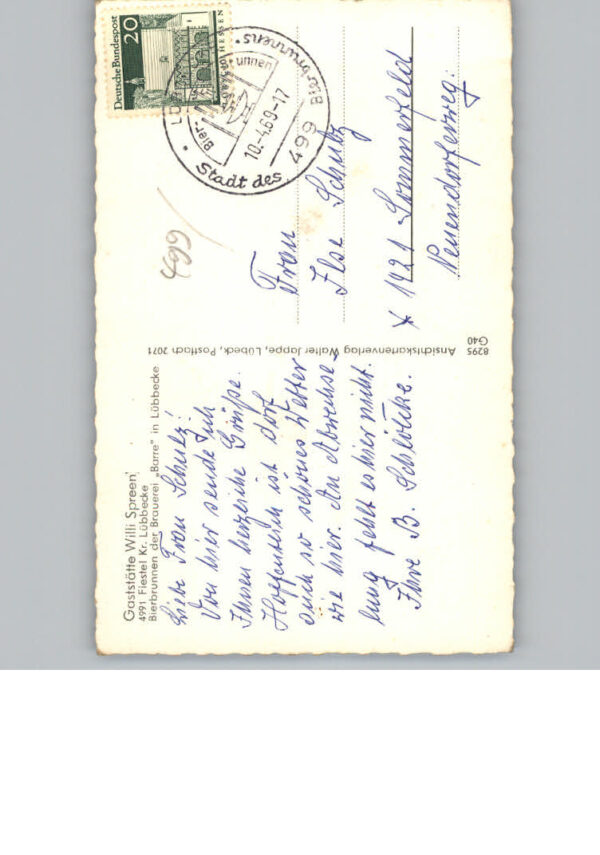 Gaststätte Willi Spreen
4991 Fiestel Kr. Lübbecke
Bierbrunnen der Brauerei „Barre" in Lübbecke
Liebe Frau Schulz!
Von hier sende ich
Ihnen herzliche Grüße.
Hoffentlich ist dort
auch so schönes Wetter
wie hier. An Abwechse-
lung fehlt es hier nicht.
Ihre B.
8295 Ansichtskartenverlag Walter Jappe, Lübeck, Postfach 2071
G40
Deutsche Bundespost
20
HESSEN
499
Stadt des Bierbrunnens
10.-4.69-17
499
Frau
Ilse Schulz
x 1421 Sommerfeld
Neuendorferweg.